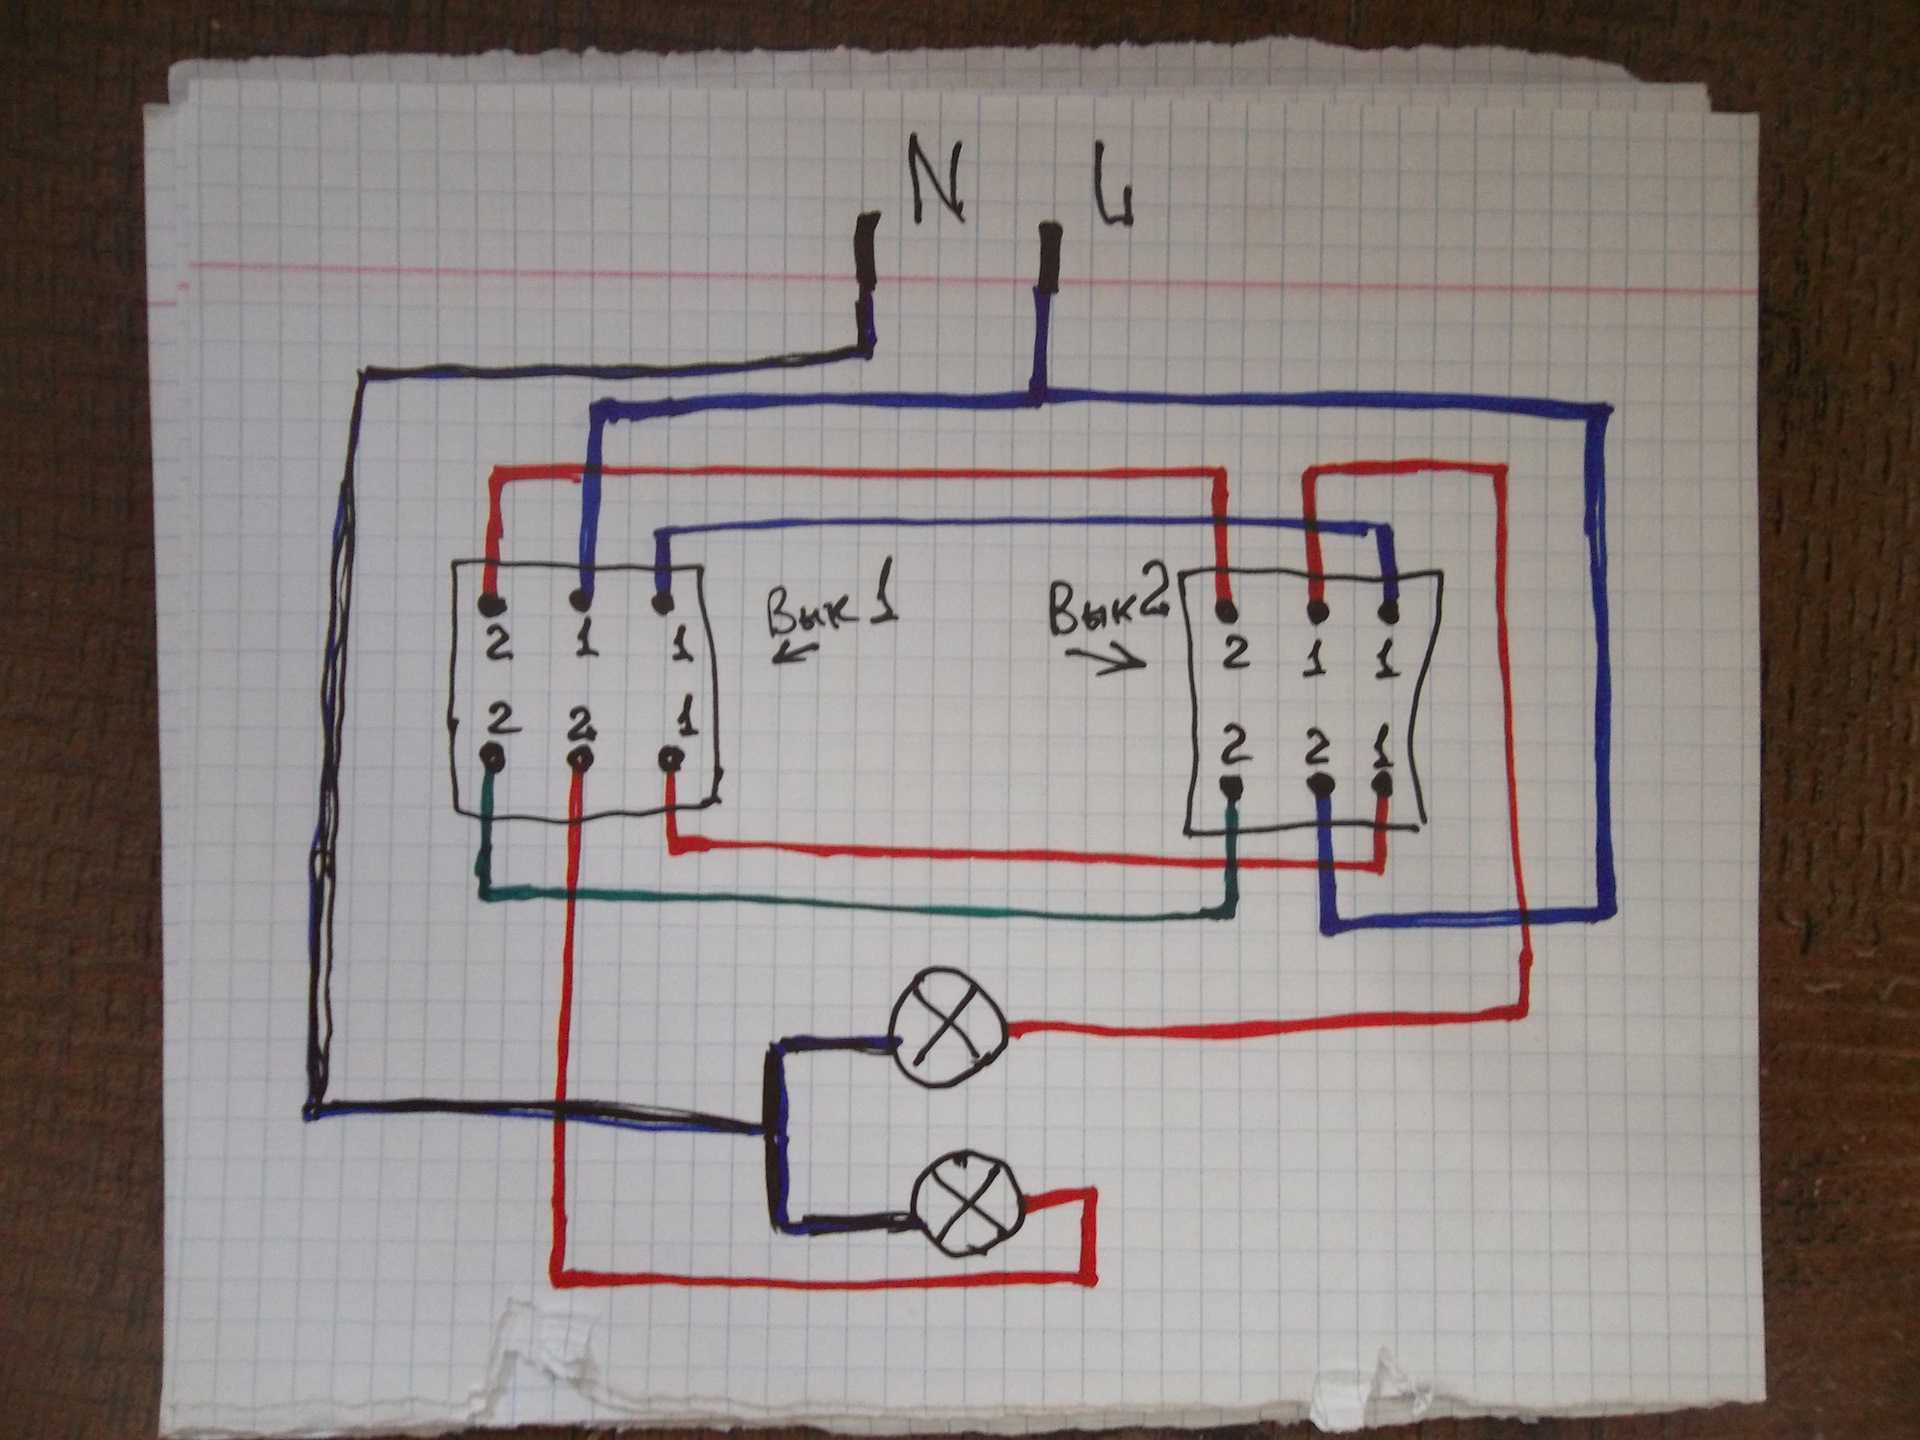 N L
Вык 1 Вык 2
2 1 1 2 1 1
2 2 1 2 2 1